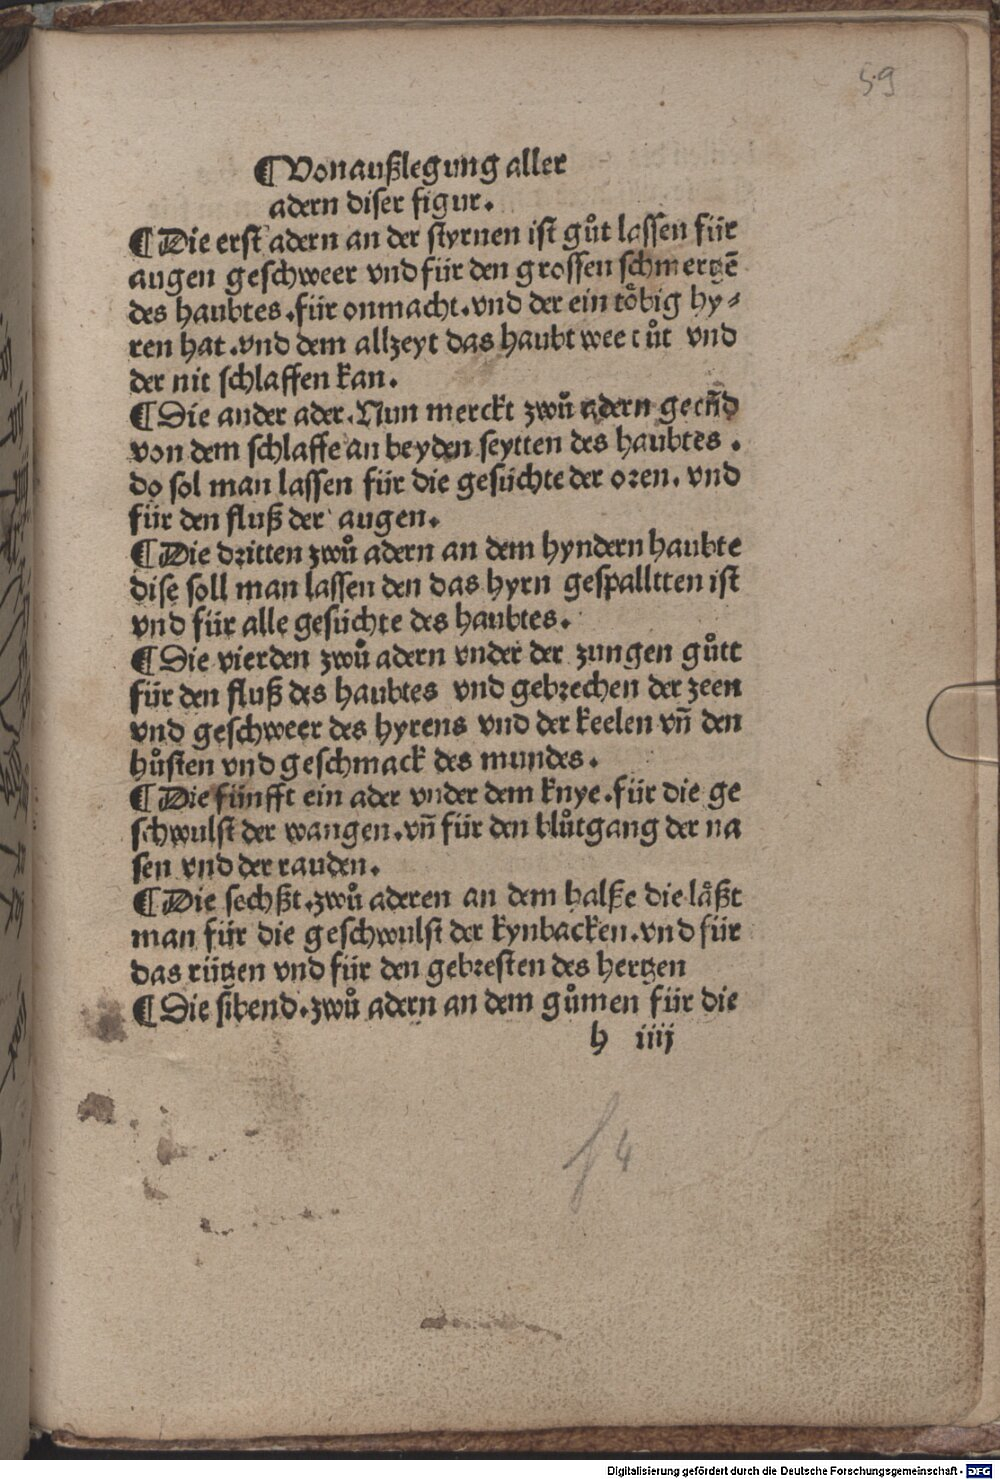 59
¶ Von außlegung aller
adern diser figur.
¶ Die erst adern an der styrnen ist gůt lassen für
augen geschweer vnd für den grossen schmertzē
des haubtes. für onmacht. vnd der ein tôbig hy⸗
ren hat. vnd dem allzeyt das haubt wee tůt vnd
der nit schlaffen kan.
¶ Die ander ader. Nun merckt zwů adern geend̄
von dem schlaffe an beyden seytten des haubtes.
do sol man lassen für die gesüchte der oren. vnd
für den fluß der augen.
¶ Die dritten zwů adern an dem hyndern haubte
dise soll man lassen den das hyrn gespalltten ist
vnd für alle gesüchte des haubtes.
¶ Die vierden zwů adern vnder der zungen gůtt
für den fluß des haubtes vnd gebrechen der zeen
vnd geschweer des hyrens vnd der keelen vn̄ den
hůsten vnd geschmack des mundes.
¶ Die fünfft ein ader vnder dem knye. für die ge
schwulst der wangen. vn̄ für den blůtgang der na
sen vnd der rauden.
¶ Die sechßt. zwů aderen an dem halße die lâßt
man für die geschwulst der kynbacken. vnd für
das rützen vnd für den gebresten des hertzen
¶ Die sibend. zwů adern an dem gůmen für die
h iiij
f 4
Digitalisierung gefördert durch die Deutsche Forschungsgemeinschaft - DFG